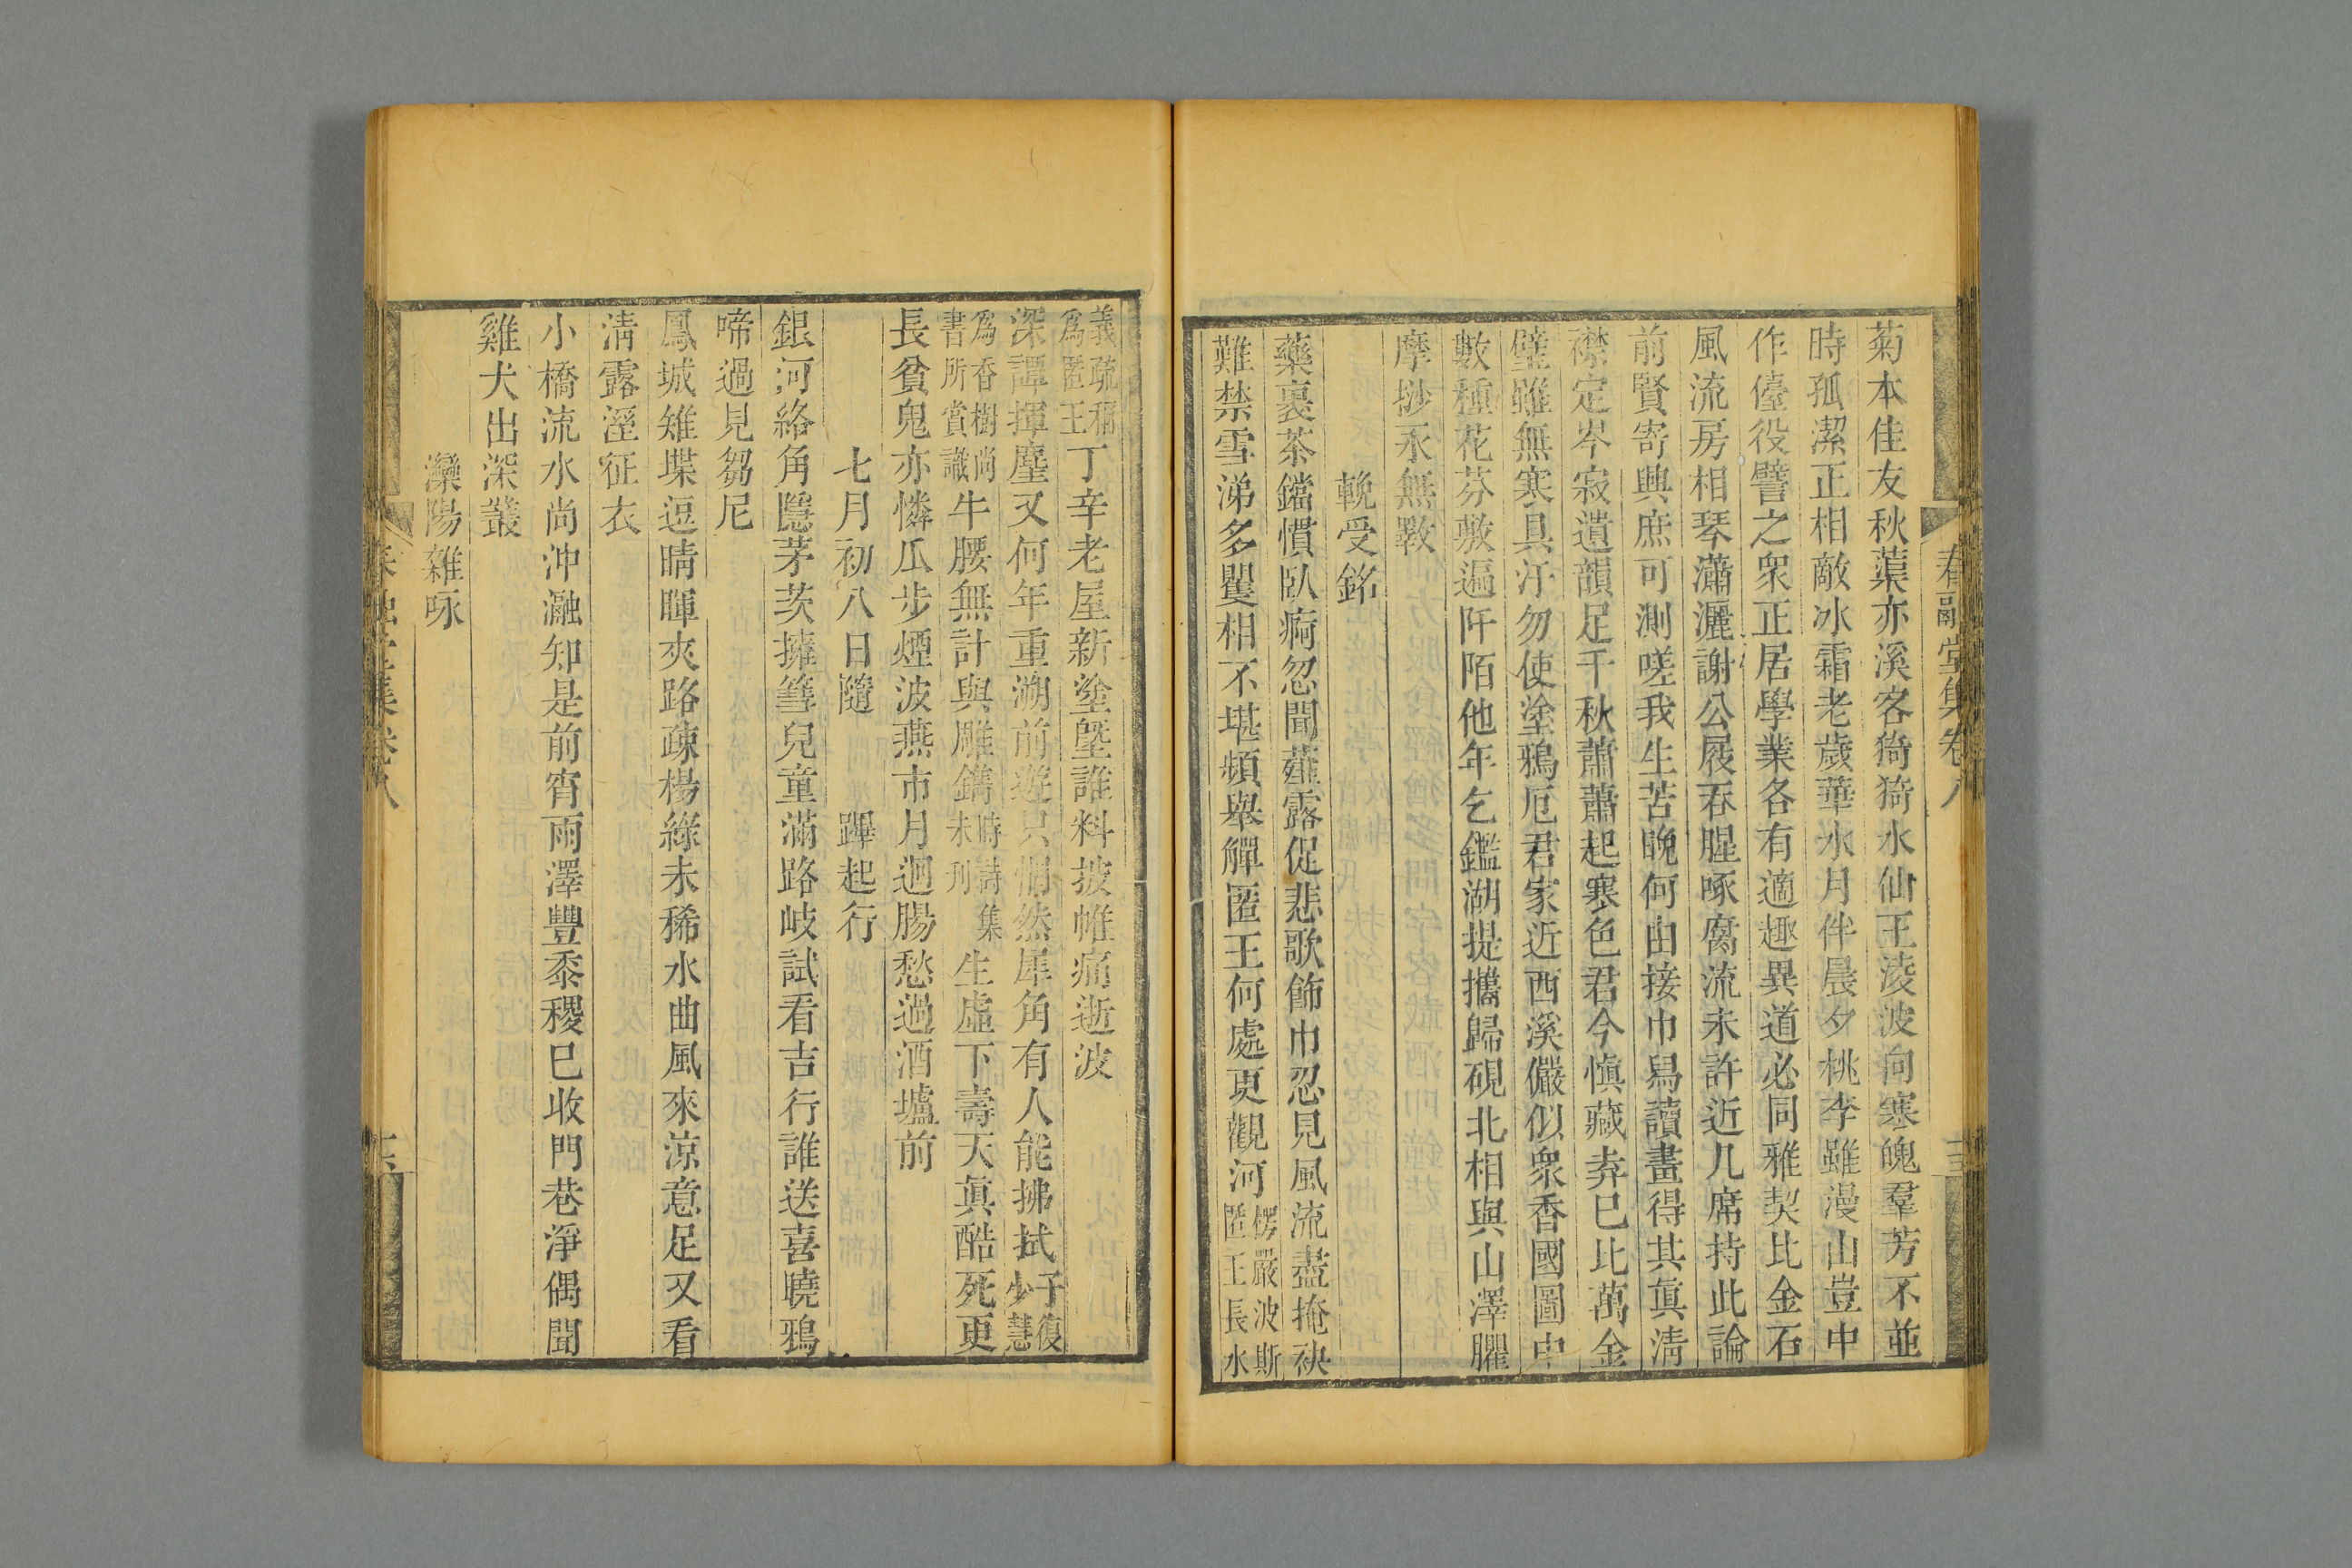 春融堂集卷八
菊本佳友秋蕖亦溪客猗猗水仙王淩波向寒魄羣芳不並
時孤潔正相敵冰霜老歲華水月伴晨夕桃李雖漫山豈中
作儓役譬之衆正居學業各有適趣異道必同雅契比金石
風流房相琴瀟灑謝公屐吞腥啄腐流未許近几席持此論
前賢寄興庶可測嗟我生苦晚何由接巾舄讀畫得其眞淸
襟定岑寂遺韻足千秋蕭蕭起寒色君今愼藏弆巳比萬金
璧雖無寒具汙勿使塗鴉厄君家近西溪儼似衆香國圖中
數種花芬敷遍阡陌他年乞鑑湖提攜歸硯北相與山澤臞
摩挱永無斁
輓受銘
藥裹茶鐺慣臥痾忽聞薤露促悲歌飾巾忍見風流盡掩袂
難禁雪涕多矍相不堪頻舉觶匿王何處更觀河楞嚴波斯匿王長水
義疏稱爲匿王丁辛老屋新塗墍誰料披帷痛逝波
深譚揮麈又何年重溯前遊只惘然犀角有人能拂拭子復少慧
爲香樹尚書所賞識牛腰無計與雕鐫時詩集未刋生虛下壽天眞酷死更
長貧鬼亦憐瓜步煙波燕市月迴腸愁過酒壚前
七月初八日隨 蹕起行
銀河絡角隱茅茨擁篲兒童滿路岐試看吉行誰送喜曉鴉
啼過見芻尼
鳳城雉堞逗晴暉夾路疎楊綠未稀水曲風來涼意足又看
淸露溼征衣
小橋流水尚沖瀜知是前宵雨澤豐黍稷巳收門巷淨偶聞
雞犬出深叢
灤陽雜咏